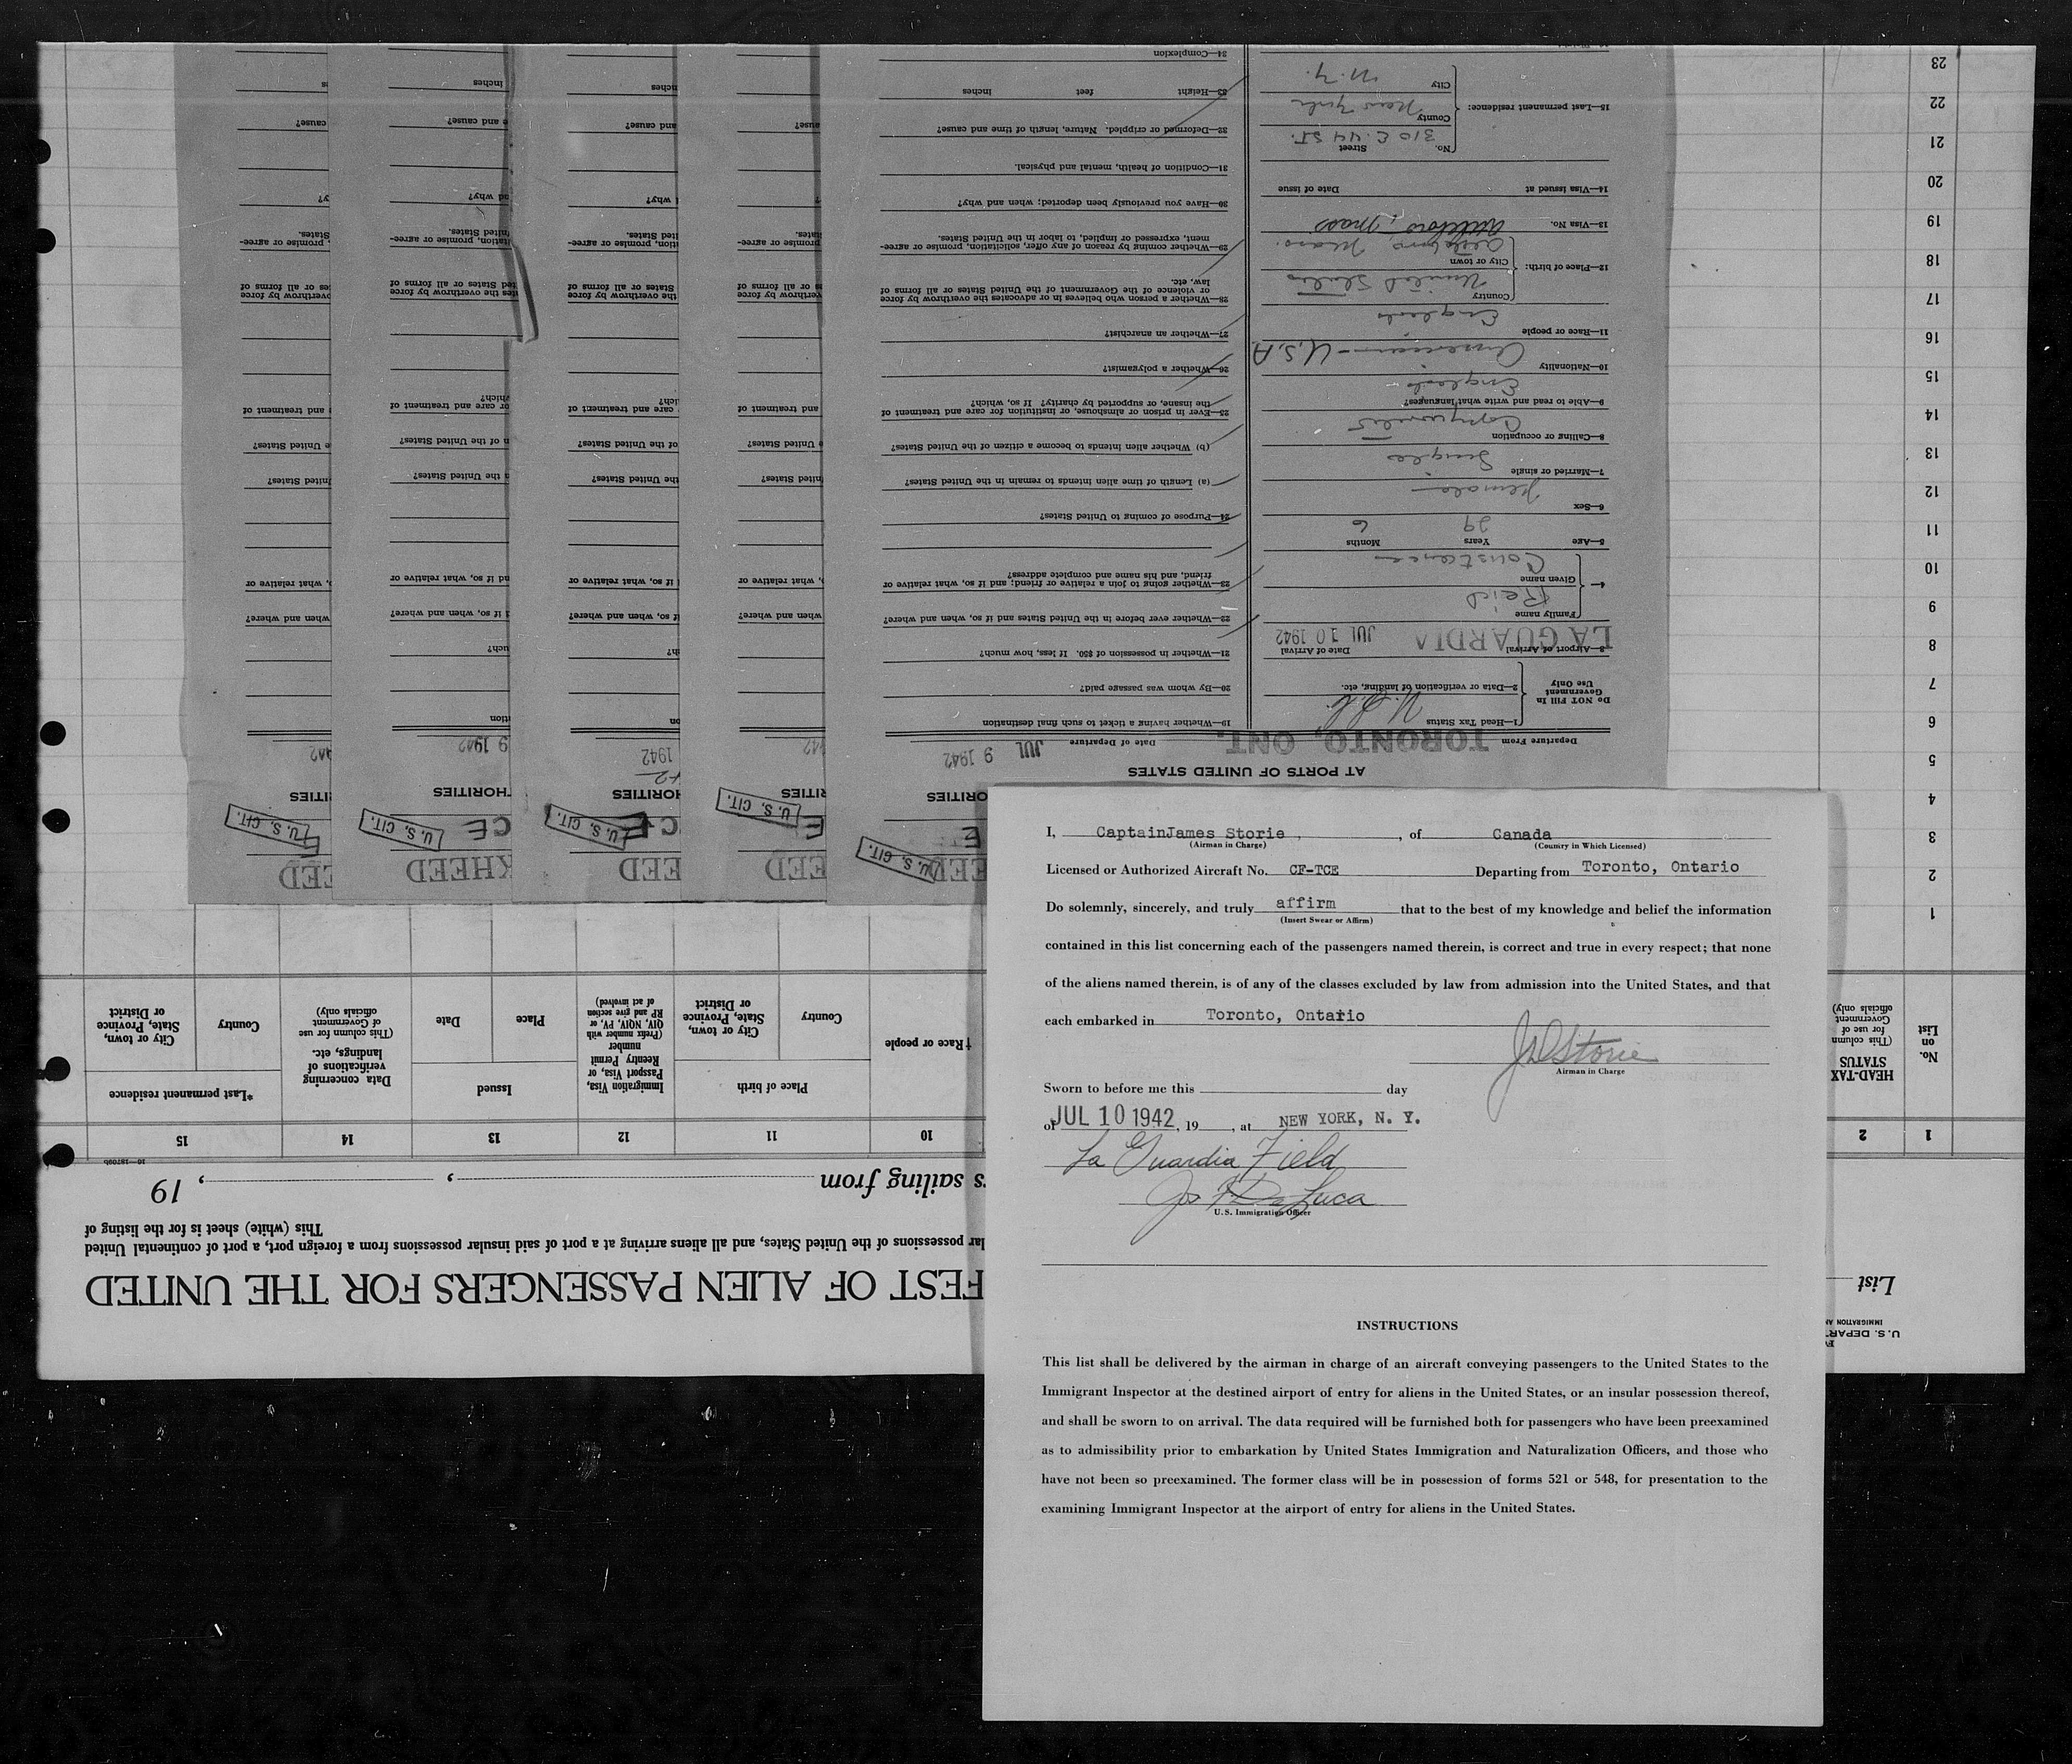 I, CaptainJames Storie , of Canada
(Airman in Charge) (Country in Which Licensed)
Licensed or Authorized Aircraft No. CF-TCE Departing from Toronto, Ontario
Do solemnly, sincerely, and truly affirm that to the best of my knowledge and belief the information
(Insert Swear or Affirm)
contained in this list concerning each of the passengers named therein, is correct and true in every respect; that none
of the aliens named therein, is of any of the classes excluded by law from admission into the United States, and that
each embarked in Toronto, Ontario
Airman in Charge
Sworn to before me this day
of JUL 10 1942, 19 , at NEW YORK, N. Y.
La Guardia Field
Jos De Luca
U.S. Immigration Officer
INSTRUCTIONS
This list shall be delivered by the airman in charge of an aircraft conveying passengers to the United States to the
Immigrant Inspector at the destined airport of entry for aliens in the United States, or an insular possession thereof,
and shall be sworn to on arrival. The data required will be furnished both for passengers who have been preexamined
as to admissibility prior to embarkation by United States Immigration and Naturalization Officers, and those who
have not been so preexamined. The former class will be in possession of forms 521 or 548, for presentation to the
examining Immigrant Inspector at the airport of entry for aliens in the United States.
U. S. CIT.
AT PORTS OF UNITED STATES
Departure From TORONTO, ONT. Date of Departure JUL 9 1942
DO NOT FILL IN
Government
Use Only
1—Head Tax Status
2—Data or verification of landing, etc.
3—Airport of Arrival LA GUARDIA Date of Arrival JUL 10 1942
4— Family name Reid
Given name Constance
5—Age 29 Years 6 Months
6—Sex Female
7—Married or single Single
8—Calling or occupation Copywriter
9—Able to read and write what languages? English
10—Nationality American - U.S.A.
11—Race or people English
12—Place of birth: Country United States
City or town Attleboro Mass.
13—Visa No. Attleboro, Mass
14—Visa issued at Date of issue
15—Last permanent residence: No. Street 310 E. 44 ST.
County New York
City N.Y.
19—Whether having a ticket to such final destination
20—By whom was passage paid?
21—Whether in possession of $50. If less, how much?
22—Whether ever before in the United States and if so, when and where?
23—Whether going to join a relative or friend; and if so, what relative or
friend, and his name and complete address?
24—Purpose of coming to United States?
(a) Length of time alien intends to remain in the United States?
(b) Whether alien intends to become a citizen of the United States?
25—Ever in prison or almshouse, or institution for care and treatment of
the insane, or supported by charity? If so, which?
26—Whether a polygamist?
27—Whether an anarchist?
28—Whether a person who believes in or advocates the overthrow by force
or violence of the Government of the United States or all forms of
law, etc.
29—Whether coming by reason of any offer, solicitation, promise or agree-
ment, expressed or implied, to labor in the United States.
30—Have you previously been deported; when and why?
31—Condition of health, mental and physical.
32—Deformed or crippled. Nature, length of time and cause?
33—Height feet inches
34—Complexion
U. S. CIT.
U. S. CIT.
U. S. CIT.
U. S. CIT.
List
FEST OF ALIEN PASSENGERS FOR THE UNITED
lar possessions of the United States, and all aliens arriving at a port of said insular possessions from a foreign port, a port of continental United
This (white) sheet is for the listing of
s sailing from , , 19
1 2 10 11 12 13 14 15
No.
on
List
HEAD-TAX
STATUS
(This column
for use of
Government
officials only)
†Race or people
Place of birth
Country
City or town,
State, Province
or District
Immigration Visa,
Passport Visa, or
Reentry Permit
number
(Prefix number with
QIV, NQIV, PV, or
RP and give section
of act involved)
Issued
Place
Date
Data concerning
verifications of
landings, etc.
(This column for use
of Government
officials only)
*Last permanent residence
Country
City or town,
State, Province
or District
1
2
3
4
5
6
7
8
9
10
11
12
13
14
15
16
17
18
19
20
21
22
23